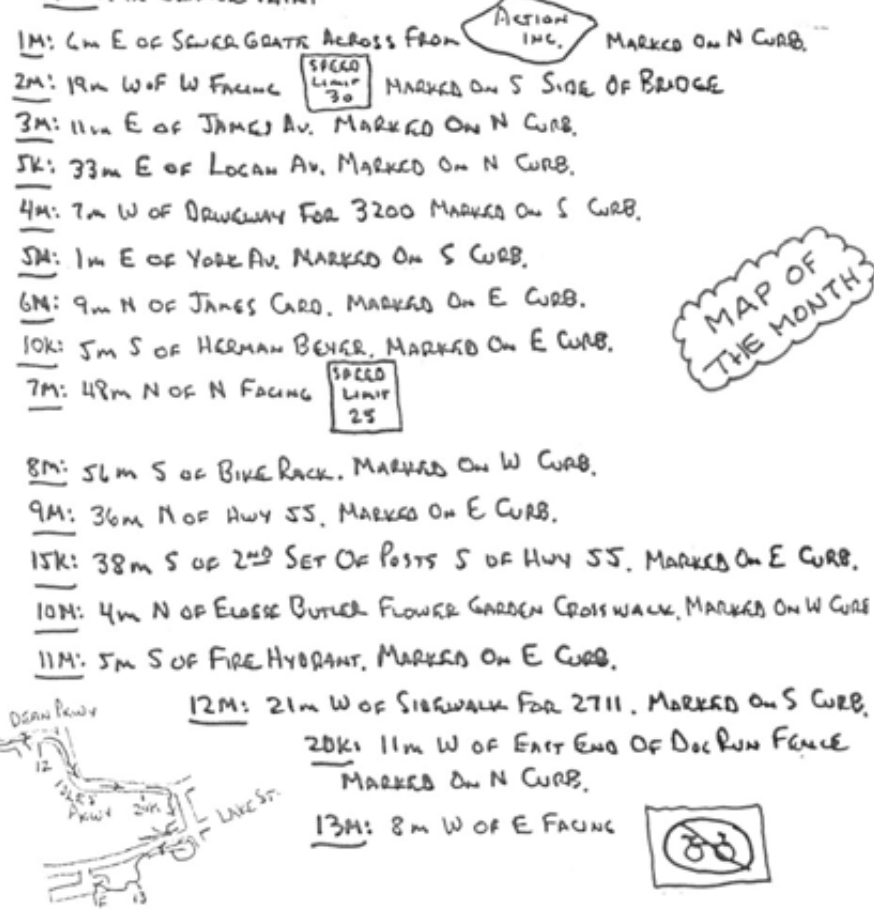 1M: 6m E OF SEWER GRATE ACROSS FROM ACTION INC. MARKED ON N CURB.
2M: 19m W OF W FACING SPEED LIMIT 30 MARKED ON S SIDE OF BRIDGE
3M: 11m E OF JAMES AV. MARKED ON N CURB.
5K: 33m E OF LOGAN AV. MARKED ON N CURB.
4M: 7m W OF DRIVEWAY FOR 3200 MARKED ON S CURB.
5M: 1m E OF YORK AV. MARKED ON S CURB.
6M: 9m N OF JAMES CARD. MARKED ON E CURB.
MAP OF THE MONTH
10K: 5m S OF HERMAN BEYER. MARKED ON E CURB.
7M: 48m N OF N FACING SPEED LIMIT 25
8M: 56m S OF BIKE RACK. MARKED ON W CURB.
9M: 36m N OF HWY 55. MARKED ON E CURB.
15K: 38m S OF 2ND SET OF POSTS S OF HWY 55. MARKED ON E CURB.
10M: 4m N OF ELOISE BUTLER FLOWER GARDEN CROSSWALK. MARKED ON W CURB
11M: 5m S OF FIRE HYDRANT. MARKED ON E CURB.
12M: 21m W OF SIDEWALK FOR 2711. MARKED ON S CURB.
20K: 11m W OF EAST END OF DOG RUN FENCE
MARKED ON N CURB.
13M: 8m W OF E FACING
DEAN PKWY
12
ISLES PKWY
20K
LAKE ST.
F 13